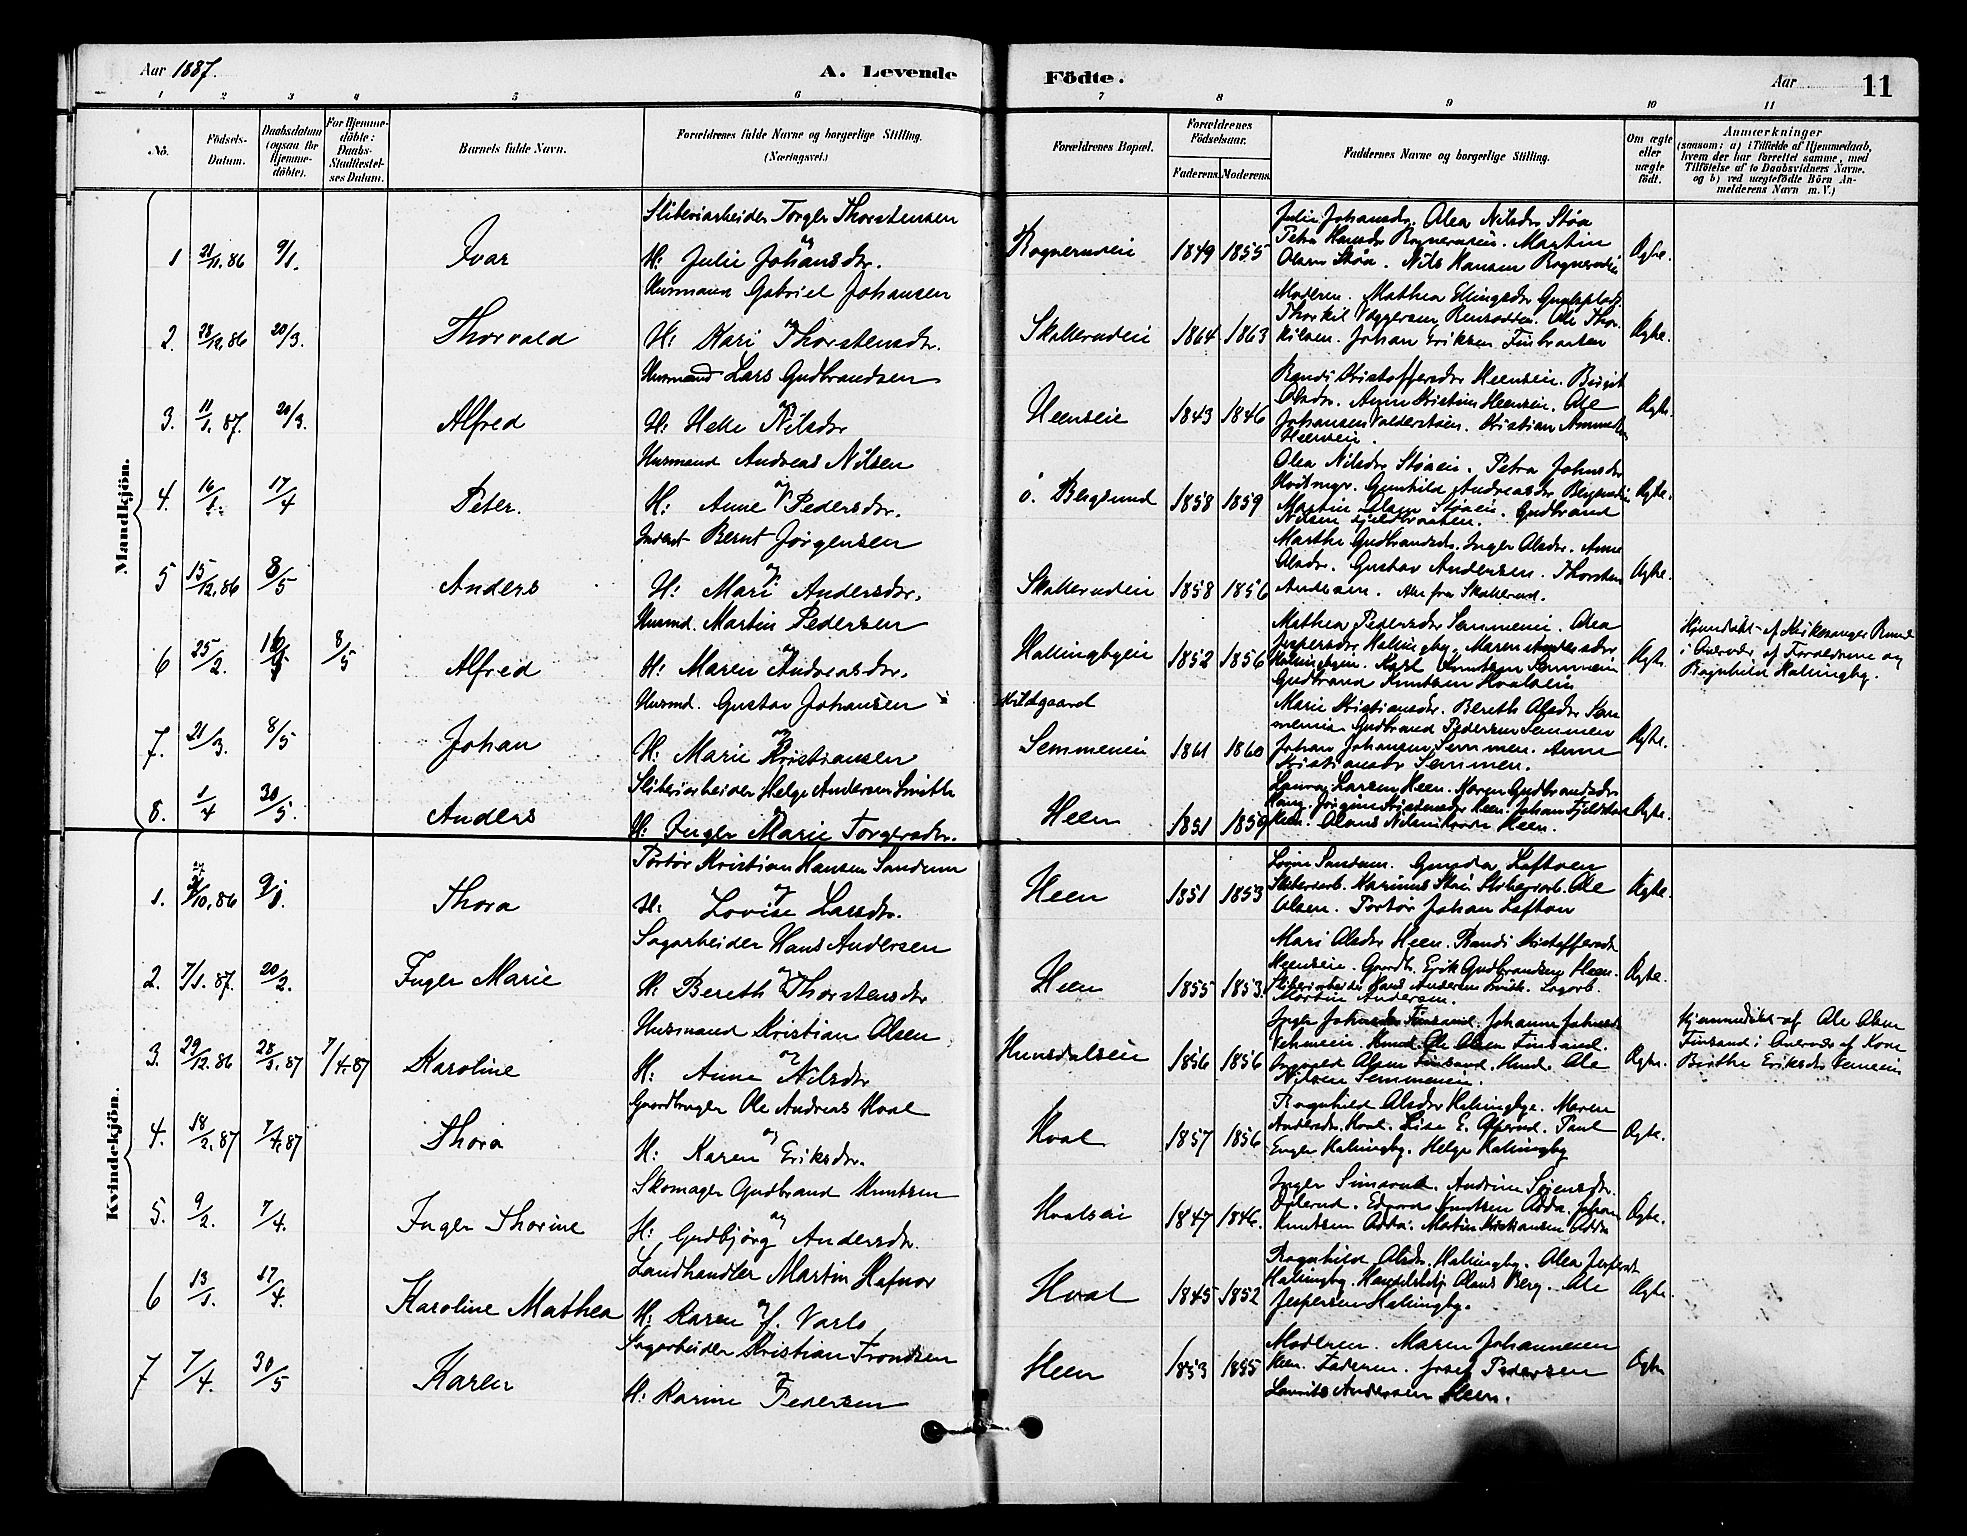 Aar 1887.
A. Levende
Födte.
Aar
11
1 2 3 4 5 6 7 8 9 10 11
No.
Födsels-Datum.
Daabsdatum (ogsaa for Hjemmedöbte).
For Hjemmedöbte: Daabs-Stadfæstelses Datum.
Barnets fulde Navn.
Forældrenes fulde Navne og borgerlige Stilling. (Næringsvei.)
Forældrenes Bopæl.
Forældrenes Födselsaar.
Faderens. Moderens.
Faddernes Navne og borgerlige Stilling.
Om ægte eller uægte födt.
Anmærkninger
(saasom: a) i Tilfælde af Hjemmedaab, hvem der har forrettet samme, med Tilföielse af to Daabsvidners Navne, og b) ved uægtefödte Börn Anmelderens Navn m. V.)
Mandkjön.
1 21/11.86 9/1. Ivar
Sliberiarbeider Torger Thorstensen
og
H: Julie Johansdr.
Rognerudeie 1849 1855
Julie Johansdr, Olea Nilsdr Støa
Petra Hansdr Rognerudeie. Martin
Olsen Støa. Nils Hansen Rognerudeie
Ægte.
2. 28/12.86 20/3. Thorvald
Husmand Gabriel Johansen
og
H: Kari Thorstensdr.
Skollerudeie 1864 1863
Moderen. Mathea Ellingsdr
Thorkil Ole Thor-
kilsen. Johan Eriksen Finbraaten
Ægte.
3. 11/1. 87. 20/3. Alfred
Husmand Lars Gudbrandsen
og
H: Helle Nilsdr
Heenseie 1843 1846
Randi Kristoffersdr Heenseie. Birgit
Olsdr. Anne Kristine Heenseie. Ole
Johansen Kristian
Heenseie.
Ægte.
4. 16/1. 17/4 Peter.
Husmand Andreas Nilsen
og
H: Anne Pedersdr.
ö. Bergsund 1858 1859
Olea Nilsdr Støaeie. Petra Johnsdr
Gunhild Andreasdr
Martin Olsen Støaeie. Gudbrand
Nilsen
Ægte.
5 15/12.86 8/5 Anders
Inderst Bernt Jörgensen
og
H: Mari Andersdr.
Skollerudeie 1858 1856
Marthe Gudbrandsdr. Inger Olsdr. Anne
Olsdr. Gustav Andersen. Thorsten
Andersen. Alle fra Skollerud.
Ægte.
6 25/2. 8/5 Alfred
Husmd. Martin Pedersen
og
H: Maren Andreasdr.
Hallingbyeie 1852 1856
Mathea Pedersdr Semmeneie. Olea
Jespersdr Hallingby. Maren Andersdr
Hallingbyeie. Karl Knutsen Semmeneie
Gudbrand Knutsen Hvalseie
Ægte.
Hjemdöbt af Kirkesanger
i Overvær af Forældrene og
Ragnhild Hallingby.
7. 21/3. 8/5 Johan
Husmd. Gustav Johansen
og
H: Marie Kristiansen
Semmeneie 1861 1860
Marie Kristiansdr. Bereth Olsdr Sem-
meneie. Gudbrand Pedersen Semmen
Johan Johansen Semmen. Anne
Kristiansdr Semmen.
Ægte.
8. 1/4 30/5. Anders
Sliberiarbeider Helge Andersen Smith
H: Inger Marie Torgersdr.
Heen 1851 1859
Laura Larsen Heen. Maren Gudbrandsdr
Haug. Heen. Johan Fjeldstad
Heen. Olaus Heen.
Ægte.
Kvindekjön.
1. /10.86 9/1. Thora
Portør Kristian Hansen Sandum
og
H: Lovise Larsdr.
Heen 1851 1853
Lovise Sandum. Gunda Loftsen
Sliberiarb. Ole
Olsen. Portør Johan Loften
Ægte.
2. 7/1. 87. 20/2. Inger Marie
Sagarbeider Hans Andersen
og
H: Bereth Thorstensdr
Heen 1855 1853.
Mari Olsdr Heen. Randi Kristoffersdr
Heenseie. Gaardbr. Erik Gudbrandsen Heen.
Sliberiarbeider Hans Andersen Smith. Sagarb.
Martin Andersen.
Ægte.
3. 29/12.86 28/3.87 7/4.87 Karoline
Husmand Kristian Olsen
og
H: Anne Nilsdr
Hunsdalseie 1856 1856
Inger Johnsdr Finsand. Johanne
Ole Olsen Finsand.
Ingvald Olsen Finsand. Ole
Nilsen Semmeneie.
Ægte.
Hjemmedöbt af Ole Olsen
Finsand i Overvær af Kone
Birthe Eriksdr
4. 18/2.87 7/4.87 Thora
Gaardbruger Ole Andreas Hval
og
H: Karen Eriksdr.
Hval 1857 1856
Ragnhild Olsdr Hallingby. Maren
Andersdr. Hval. Lise E. Paul
Enger Hallingby. Helge Hallingby
Ægte.
5. 9/2. 7/4. Inger Thorine
Skomager Gudbrand Knutsen
og
H: Gudbjörg Andersdr.
Hvalseie 1847 1846.
Inger Andrine
Edvard Knutsen Adda. Johan
Knutsen Adda. Martin Kristiansen Adda
Ægte.
6 13/1. 17/4. Karoline Mathea
Landhandler Martin Hafnor
og
H: Karen f. Varlo
Hval 1845 1852
Ragnhild Olsdr. Hallingby. Olea Jespersdr
Hallingby. Olaus Berg. Ole
Jespersen Hallingby.
Ægte.
7 7/4. 30/5 Karen
Sagarbeider Kristian Trondsen
og
H: Karine Pedersen
Heen 1853 1855
Moderen. Maren Johannesen
Heen. Faderen. Josef Pedersen
Laurits Andersen Heen.
Ægte